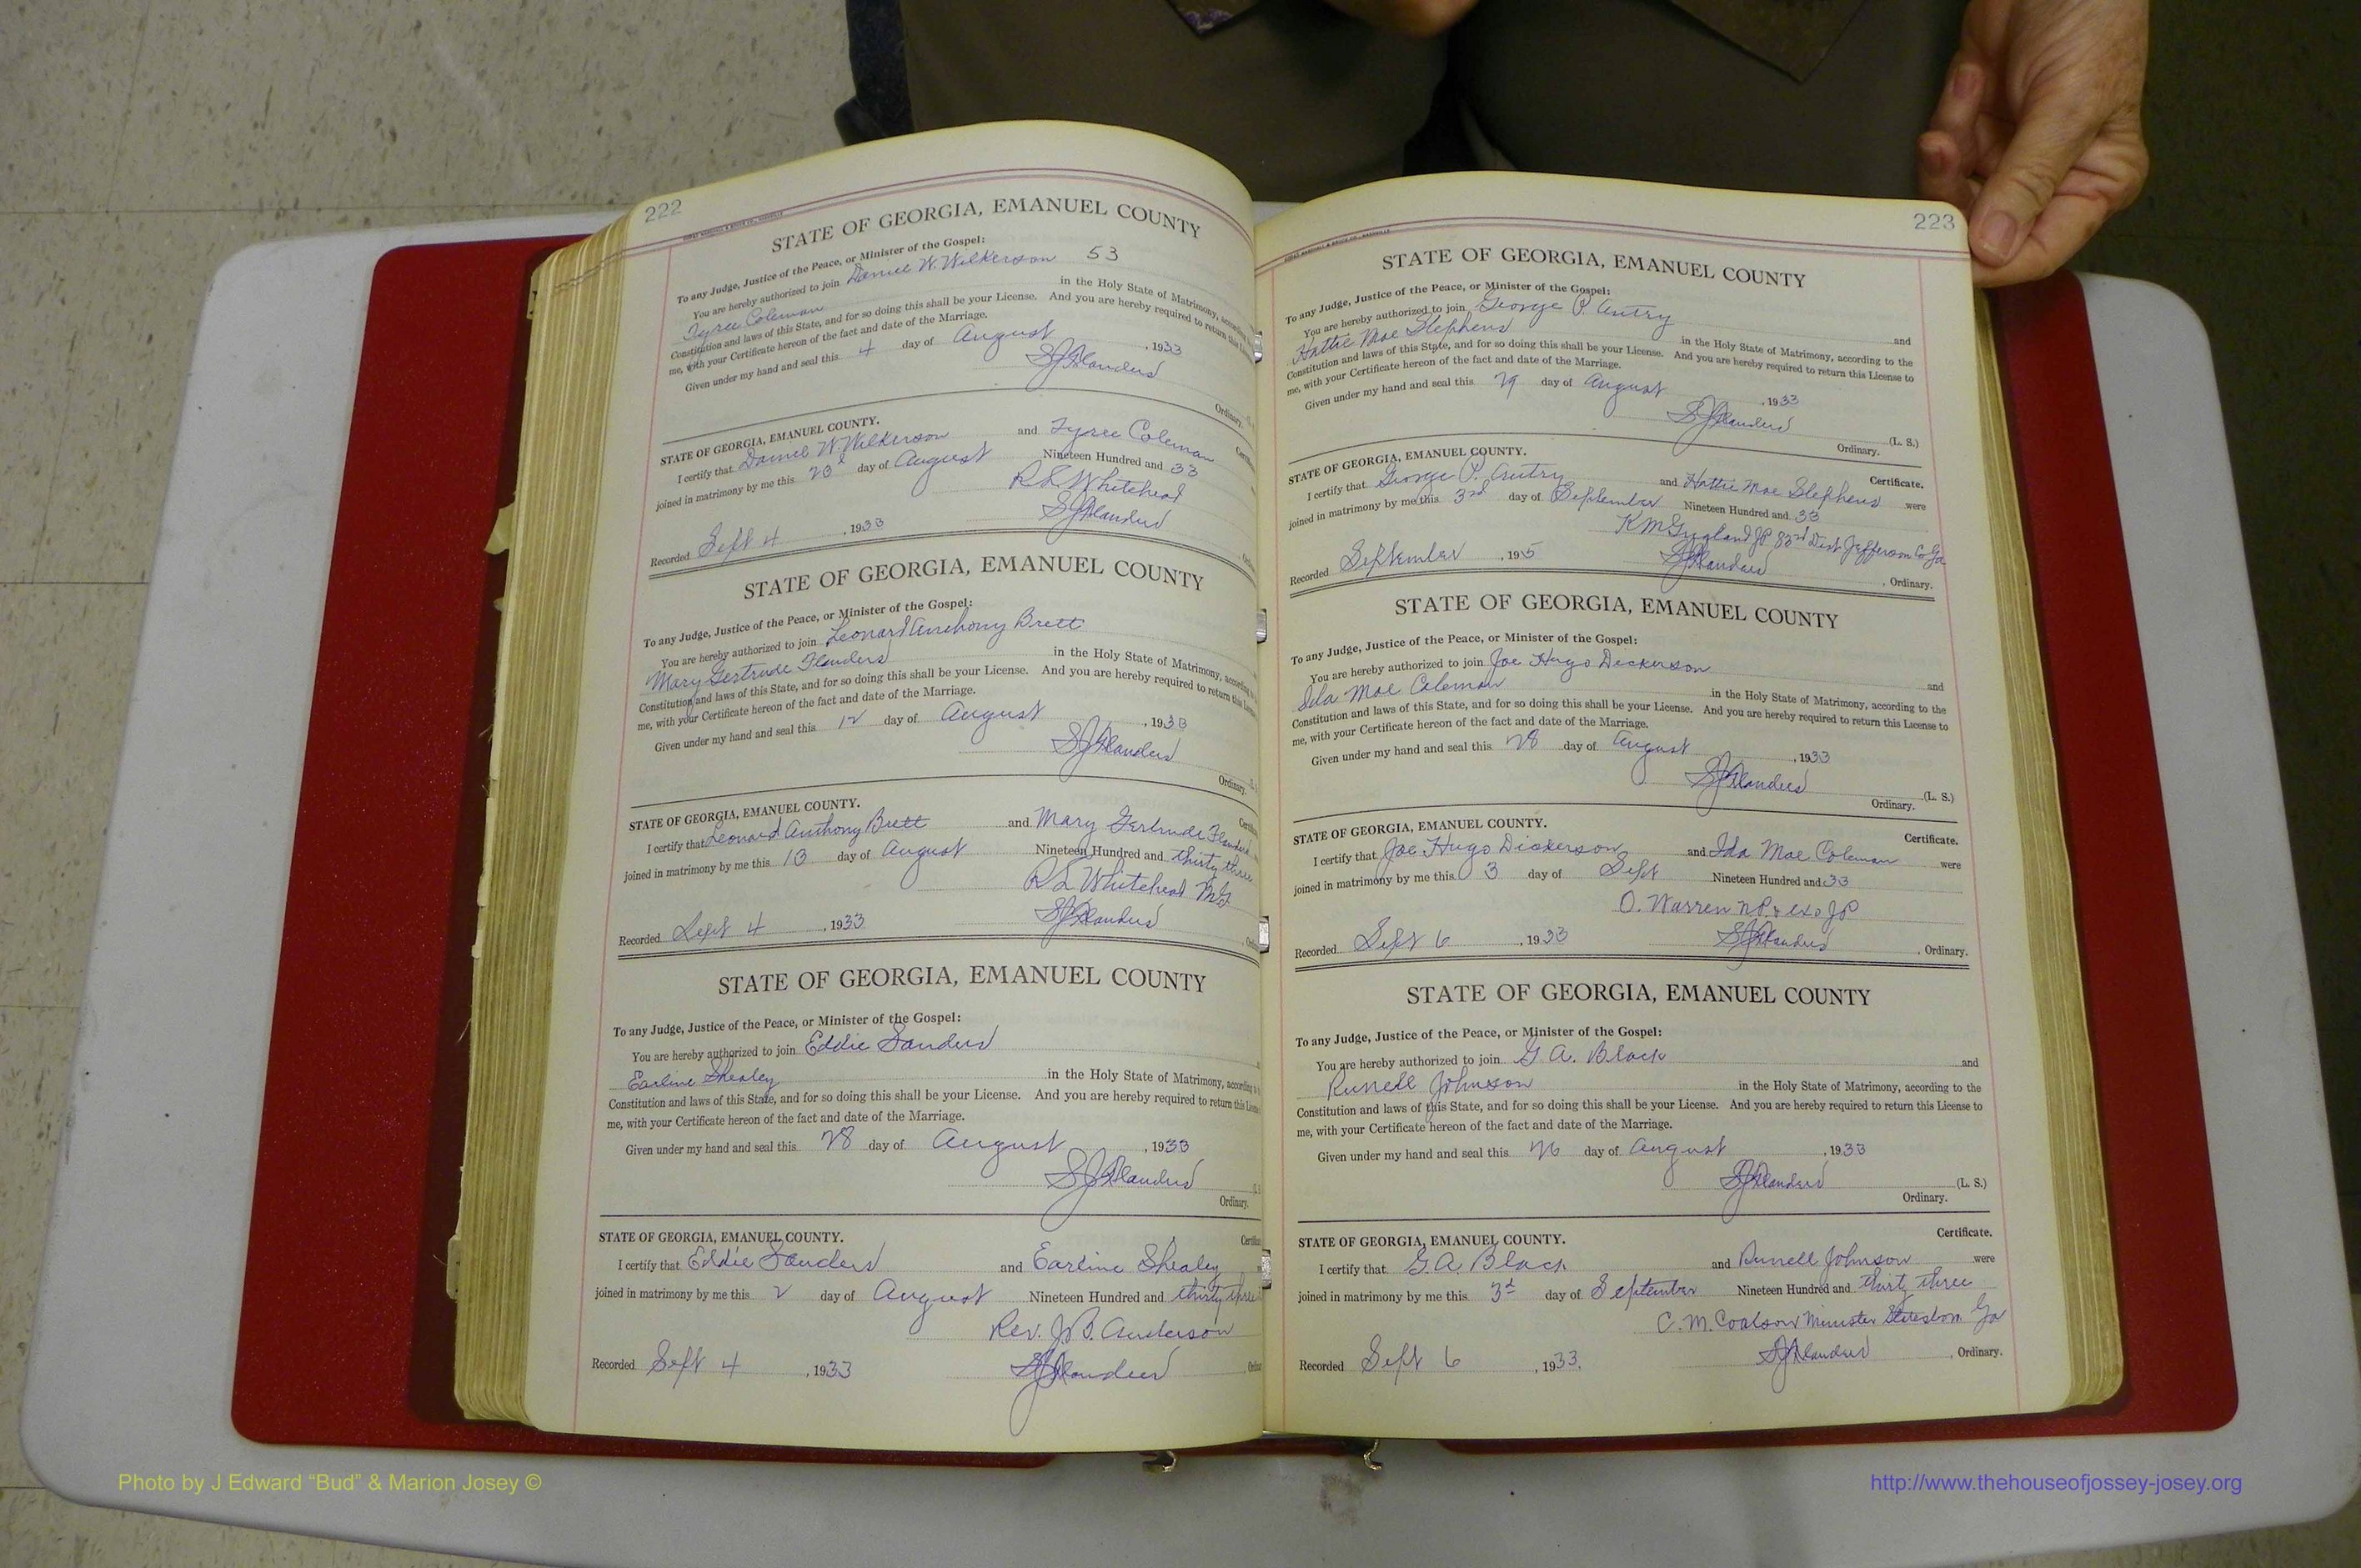 222
STATE OF GEORGIA, EMANUEL COUNTY
To any Judge, Justice of the Peace, or Minister of the Gospel:
You are hereby authorized to join Daniel W. Wilkerson 53
Tyree Coleman in the Holy State of Matrimony, according
Constitution and laws of this State, and for so doing this shall be your License. And you are hereby required to return this
me, with your Certificate hereon of the fact and date of the Marriage.
Given under my hand and seal this 4 day of August, 1933
SJFlanders
Ordinary.
STATE OF GEORGIA, EMANUEL COUNTY.
I certify that Daniel W. Wilkerson and Tyree Coleman
joined in matrimony by me this 20 day of August Nineteen Hundred and 33
R S Whitehead
Recorded Sept 4, 1933 SJFlanders
STATE OF GEORGIA, EMANUEL COUNTY
To any Judge, Justice of the Peace, or Minister of the Gospel:
You are hereby authorized to join Leonard Anthony Brett
Mary Gertrude Flanders in the Holy State of Matrimony, according
Constitution and laws of this State, and for so doing this shall be your License. And you are hereby required to return this
me, with your Certificate hereon of the fact and date of the Marriage.
Given under my hand and seal this 12 day of August, 1933
SJFlanders
Ordinary.
STATE OF GEORGIA, EMANUEL COUNTY.
I certify that Leonard Anthony Brett and Mary Gertrude Flanders
joined in matrimony by me this 13 day of August Nineteen Hundred and thirty three
R S Whitehead MG
Recorded Sept 4, 1933 SJFlanders
STATE OF GEORGIA, EMANUEL COUNTY
To any Judge, Justice of the Peace, or Minister of the Gospel:
You are hereby authorized to join Eddie Sanders
Earline Shealey in the Holy State of Matrimony, according
Constitution and laws of this State, and for so doing this shall be your License. And you are hereby required to return this
me, with your Certificate hereon of the fact and date of the Marriage.
Given under my hand and seal this 28 day of August, 1933
SJFlanders
Ordinary.
STATE OF GEORGIA, EMANUEL COUNTY.
I certify that Eddie Sanders and Earline Shealey
joined in matrimony by me this 2 day of August Nineteen Hundred and thirty three
Rev. J.B. Anderson
Recorded Sept 4, 1933 SJFlanders
223
STATE OF GEORGIA, EMANUEL COUNTY
To any Judge, Justice of the Peace, or Minister of the Gospel:
You are hereby authorized to join George P. Autry and
Hattie Mae Stephens in the Holy State of Matrimony, according to the
Constitution and laws of this State, and for so doing this shall be your License. And you are hereby required to return this License to
me, with your Certificate hereon of the fact and date of the Marriage.
Given under my hand and seal this 29 day of August, 1933
SJFlanders (L. S.)
Ordinary.
STATE OF GEORGIA, EMANUEL COUNTY. Certificate.
I certify that George P. Autry and Hattie Mae Stephens were
joined in matrimony by me this 3rd day of September Nineteen Hundred and 33
JP 83rd Dist Jefferson Co Ga
Recorded September, 195 SJFlanders, Ordinary.
STATE OF GEORGIA, EMANUEL COUNTY
To any Judge, Justice of the Peace, or Minister of the Gospel:
You are hereby authorized to join Joe Hugo Dickerson and
Ida Mae Coleman in the Holy State of Matrimony, according to the
Constitution and laws of this State, and for so doing this shall be your License. And you are hereby required to return this License to
me, with your Certificate hereon of the fact and date of the Marriage.
Given under my hand and seal this 28 day of August, 1933
SJFlanders (L. S.)
Ordinary.
STATE OF GEORGIA, EMANUEL COUNTY. Certificate.
I certify that Joe Hugo Dickerson and Ida Mae Coleman were
joined in matrimony by me this 3 day of Sept Nineteen Hundred and 33
O. Warren NP & exo JP
Recorded Sept 6, 1933 SJFlanders, Ordinary.
STATE OF GEORGIA, EMANUEL COUNTY
To any Judge, Justice of the Peace, or Minister of the Gospel:
You are hereby authorized to join G. A. Black and
Runell Johnson in the Holy State of Matrimony, according to the
Constitution and laws of this State, and for so doing this shall be your License. And you are hereby required to return this License to
me, with your Certificate hereon of the fact and date of the Marriage.
Given under my hand and seal this 26 day of August, 1933
SJFlanders (L. S.)
Ordinary.
STATE OF GEORGIA, EMANUEL COUNTY. Certificate.
I certify that G. A. Black and Runell Johnson were
joined in matrimony by me this 3d day of September Nineteen Hundred and thirty three
C. M. Coalson Minister Statesboro Ga
Recorded Sept 6, 1933. SJFlanders, Ordinary.
Photo by J Edward “Bud” & Marion Josey ©
http://www.thehouseofjossey-josey.org